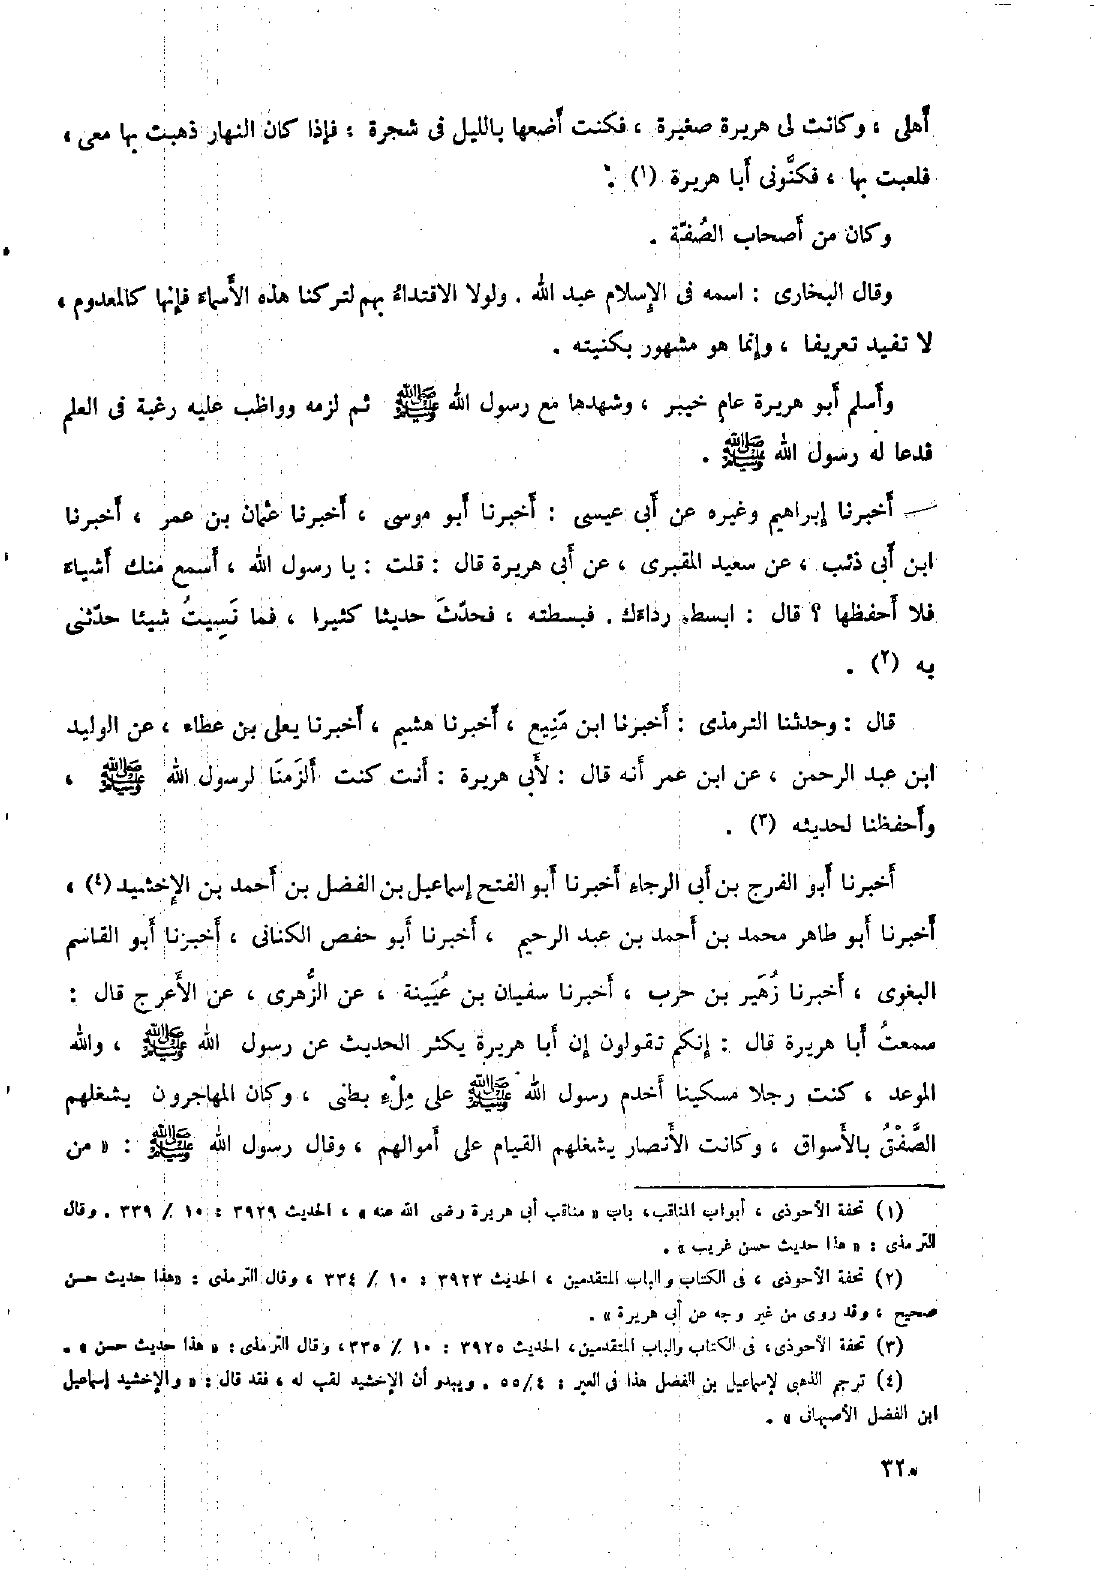 أهلى ، وكانت لى هريرة صغيرة ، فكنت أضعها بالليل فى شجرة ؛ فإذا كان النهار ذهبت بها معى ،
فلعبت بها ، فكنَّونى أبا هريرة (١) .
وكان من أصحاب الصُفّة .
وقال البخارى : اسمه فى الإسلام عبد الله . ولولا الاقتداءُ بهم لتركنا هذه الأسماءَ فإنها كالمعدوم ،
لا تفيد تعريفا ، وإنما هو مشهور بكنيته .
وأسلم أبو هريرة عام خيبر ، وشهدها مع رسول الله ﷺ ثم لزمه وواظب عليه رغبة فى العلم
فدعا له رسول الله ﷺ .
أخبرنا إبراهيم وغيره عن أبى عيسى : أخبرنا أبو موسى ، أخبرنا عثمان بن عمر ، أخبرنا
ابن أبى ذئب ، عن سعيد المقبرى ، عن أبى هريرة قال : قلت : يا رسول الله ، أسمع منك أشياءَ
فلا أحفظها ؟ قال : ابسط رداءك . فبسطته ، فحدّثَ حديثا كثيرا ، فما نَسِيتُ شيئا حدّثنى
به (٢) .
قال : وحدثنا الترمذى : أخبرنا ابن مَنِيع ، أخبرنا هشيم ، أخبرنا يعلى بن عطاء ، عن الوليد
ابن عبد الرحمن ، عن ابن عمر أنه قال : لأبى هريرة : أنت كنت ألزَمنَا لرسول الله ﷺ ،
وأحفظنا لحديثه (٣) .
أخبرنا أبو الفرج بن أبى الرجاءِ أخبرنا أبو الفتح إسماعيل بن الفضل بن أحمد بن الإخشيد (٤) ،
أخبرنا أبو طاهر محمد بن أحمد بن عبد الرحيم ، أخبرنا أبو حفص الكنانى ، أخبرنا أبو القاسم
البغوى ، أخبرنا زُهَير بن حرب ، أخبرنا سفيان بن عُيَينة ، عن الزُّهرى ، عن الأَعرج قال :
سمعتُ أبا هريرة قال : إنكم تقولون إن أبا هريرة يكثر الحديث عن رسول الله ﷺ ، والله
الموعد ، كنت رجلا مسكينا أخدم رسول الله ﷺ على مِلْءِ بطنى ، وكان المهاجرون يشغلهم
الصَّفْقُ بالأسواق ، وكانت الأنصار يشغلهم القيام على أموالهم ، وقال رسول الله ﷺ : « من
(١) تحفة الأحوذى ، أبواب المناقب، باب « مناقب أبى هريرة رضى الله عنه » ، الحديث ٣٩٢٩ : ١٠ / ٣٣٩ . وقال
الترمذى : « هذا حديث حسن غريب » .
(٢) تحفة الأحوذى ، فى الكتاب والباب المتقدمين ، الحديث ٣٩٢٣ : ١٠ / ٣٣٤ ، وقال الترمذى : «هذا حديث حسن
صحيح ، وقد روى من غير وجه عن أبى هريرة » .
(٣) تحفة الأحوذى، فى الكتاب والباب المتقدمين، الحديث ٣٩٢٥ : ١٠ / ٣٣٥، وقال الترمذى: « هذا حديث حسن » .
(٤) ترجم الذهبى لإسماعيل بن الفضل هذا فى العبر : ٥٥/٤ . ويبدو أن الإخشيد لقب له ، فقد قال : « والإخشيد إسماعيل
ابن الفضل الأصبهانى » .
٣٢٠